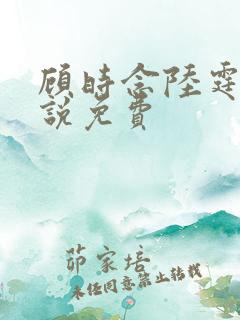 顾时念陆霆
説免费
茆家培
未经同意禁止转载